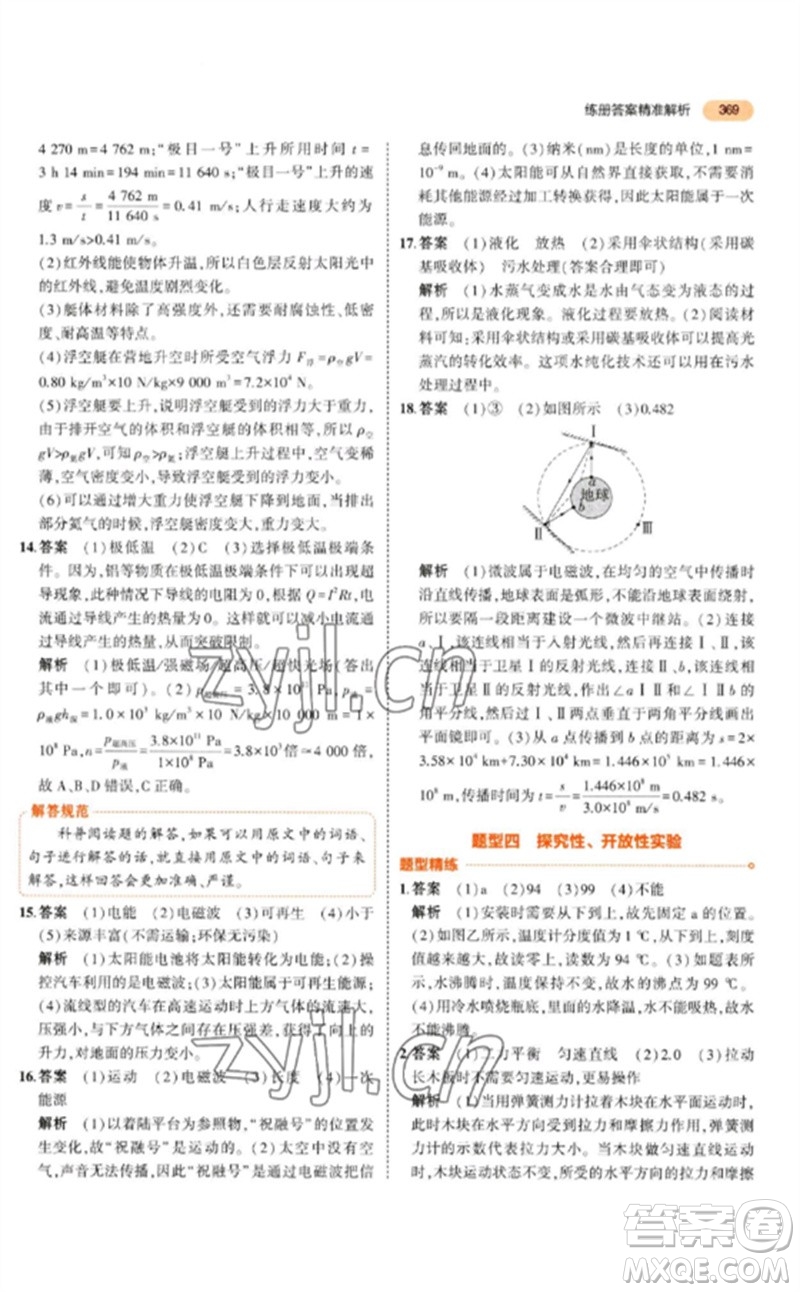 练册答案精准解析 369
4 270 m=4 762 m;“极目一号”上升所用时间 t=
3 h 14 min=194 min=11 640 s;“极目一号”上升的速
度v=s/t=4 762 m/11 640 s=0.41 m/s;人行走速度大约为
1.3 m/s>0.41 m/s。
(2)红外线能使物体升温,所以白色层反射太阳光中
的红外线,避免温度剧烈变化。
(3)艇体材料除了高强度外,还需要耐腐蚀性、低密
度、耐高温等特点。
(4)浮空艇在营地升空时所受空气浮力 F浮=ρ空gV=
0.80 kg/m³×10 N/kg×9 000 m³=7.2×10⁴ N。
(5)浮空艇要上升,说明浮空艇受到的浮力大于重力,
由于排开空气的体积和浮空艇的体积相等,所以 ρ空
gV>ρ氦gV,可知 ρ空>ρ氦;浮空艇上升过程中,空气变稀
薄,空气密度变小,导致浮空艇受到的浮力变小。
(6)可以通过增大重力使浮空艇下降到地面,当排出
部分氦气的时候,浮空艇密度变大,重力变大。
14.答案 (1)极低温 (2)C (3)选择极低温极端条
件。因为,铝等物质在极低温极端条件下会出现超
导现象,此种情况下导线的电阻为0。根据 Q=I²Rt,电
流通过导线产生的热量为0。这样就可以减小电流通
过导线产生的热量,从而突破限制。
解析 (1)极低温/强磁场/超高压/超快光场(答出
其中一个即可)。(2)超高压压强=3.8×10¹¹ Pa,p液=
ρ液gh深=1.0×10³ kg/m³×10 N/kg×10 000 m=1×
10⁸ Pa,n=p超高压/p液=3.8×10¹¹ Pa/1×10⁸ Pa=3.8×10³倍≈4 000 倍,
故A、B、D错误,C正确。
解答规范
科普阅读题的解答,如果可以用原文中的词语、
句子进行解答的话,就直接用原文中的词语、句子来
解答,这样回答会更加准确、严谨。
15.答案 (1)电能 (2)电磁波 (3)可再生 (4)小于
(5)来源丰富(不需运输;环保无污染)
解析 (1)太阳能电池将太阳能转化为电能。(2)操
控汽车利用的是电磁波。(3)太阳能是可再生能源。
(4)流线型的汽车在高速运动时上方气体的流速大,
压强小,与下方气体存在压强差,获得了向上的
升力,对地面的压力变小。
16.答案 (1)运动 (2)电磁波 (3)长度 (4)一次
能源
解析 (1)以着陆平台为参照物,“祝融号”的位置发
生变化,故“祝融号”是运动的。(2)太空中没有空
气,声音无法传播,因此“祝融号”是通过电磁波把信
息传回地面的。(3)纳米(nm)是长度的单位,1 nm=
10⁻⁹ m。(4)太阳能可从自然界直接获得,不需要消
耗其他能源经过加工转换获得,因此太阳能属于一次
能源。
17.答案 (1)液化 放热 (2)采用伞状结构(采用碳
基吸收体) 污水处理(答案合理即可)
解析 (1)水蒸气变成水是水由气态变为液态的过
程,所以是液化现象。液化要放热。(2)阅读材料
可知:采用伞状结构或采用碳基吸收体可以提高光
蒸汽的转化效率。这项水纯化技术还可以用在污水
处理过程中。
18.答案 (1)③ (2)如图所示 (3)0.482
Ⅰ
a
地球
b
Ⅱ
Ⅲ
解析 (1)微波属于电磁波,在均匀的空气中传播时
沿直线传播,地球表面是弧形,不能沿地球表面传播,
所以要隔一段距离建设一个微波中继站。(2)连接
a、Ⅰ,该连线相当于入射光线,连接Ⅰ、Ⅱ,该连线相
当于卫星Ⅱ的入射光线,连接Ⅱ、b,该连线
相当于卫星Ⅱ的反射光线,作出∠aⅠⅡ和∠ⅠⅡb 的
角平分线,然后过Ⅰ、Ⅱ点垂直于两角平分线画出
平面镜即可。(3)从a点到b点的距离为 s=2×
3.58×10⁴ km+7.30×10⁴ km=1.446×10⁵ km=1.446×
10⁸ m,传播时间为 t=s/v=1.446×10⁸ m/3.0×10⁸ m/s=0.482 s。
题型四 探究性、开放性实验
题型精练
1.答案 (1)a (2)94 (3)99 (4)不能
解析 (1)安装时应从下到上,故先固定 a 的位置。
(2)如图乙所示,温度计分度值为 1 ℃,从下到上,
数值越来越大,应为 94 ℃。
(3)水沸腾时,温度保持不变,故水的沸点为 99 ℃。
(4)用冷水喷烧瓶底,里面的水降温,水不能吸热,故水
不能沸腾。
2.答案 (1)二力平衡 匀速直线 (2)2.0 (3)拉动
长木板时不需要匀速运动,更易操作
解析 (1)当用弹簧测力计拉着木块在水平面运动
时,木块受到水平方向的拉力和摩擦力,弹簧测
力计的示数代表拉力大小。当木块做匀速直线运动
时,木块运动状态不变,所受的水平方向的拉力和摩擦
zyjl.cn
zyjl.cn
答案圈